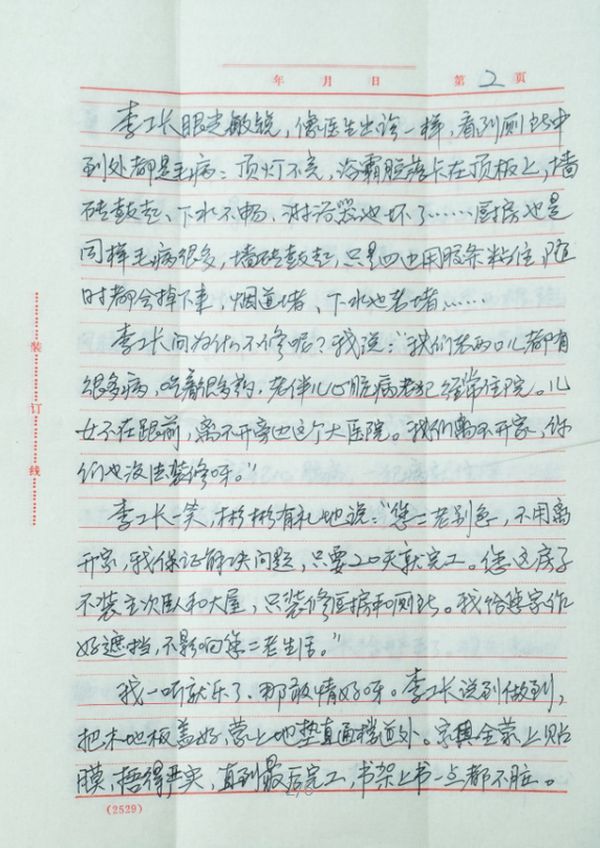 年 月 日 第 2 页
李工长眼光敏锐，像医生出诊一样，看到厕所中
到处都是毛病：顶灯不亮，浴霸脏落卡在顶板上，墙
砖鼓起、下水不畅、淋浴器也坏了……厨房也是
同样毛病很多，墙砖鼓起，只是四边用胶条粘住，随
时都会掉下来，烟道堵、下水也老堵……
李工长问为什么不修呢？我说：“我们老两口儿都有
很多病，吃着很多药，老伴儿心脏病老犯经常住院。儿
女不在跟前，离不开旁边这个大医院。我们离不开家，你
们也没法装修呀。”
李工长一笑，彬彬有礼地说：“您二老别急，不用离
开家，我保证解决问题，只要20天就完工。您这房子
不装主次卧和大屋，只装修厨房和厕所。我给您家作
好遮挡，不影响您二老生活。”
我一听就乐了，那敢情好呀。李工长说到做到，
把木地板盖好，蒙上地垫直通楼道外。家具全蒙上贴
膜，捂得严实，直到最后完工，书架上书一点都不脏。
装
订
线
(2529)